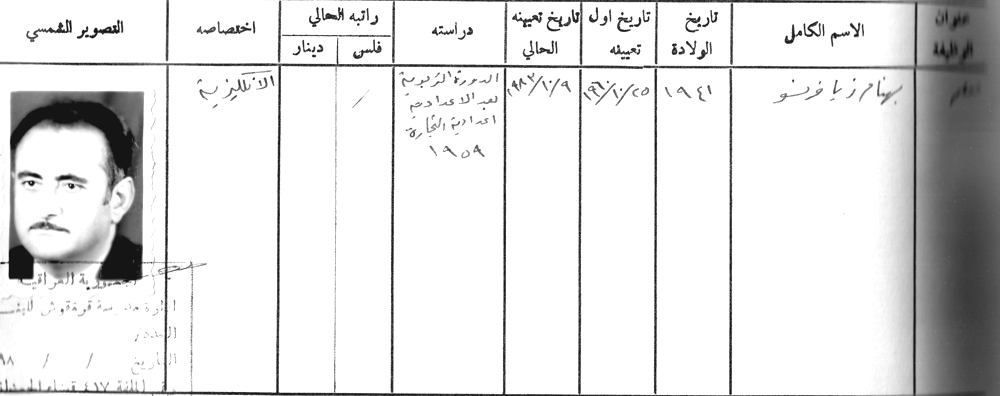 عنوان الوظيفة
الاسم الكامل
تاريخ الولادة
تاريخ اول تعيينه
تاريخ تعيينه الحالي
دراسته
راتبه الحالي
فلس
دينار
اختصاصه
التصوير الشمسي
بهنام زيا فرنسو
١٩٤١
١٩٦٠/١٠/٢٥
١٩٨٣/١٠/٩
الدورة التربوية
بعد الاعدادية
اعدادية التجارة
١٩٥٩
/
الانكليزية
الجمهورية العراقية
ادارة مدرسة قرةقوش للبنين
العدد
التاريخ / /